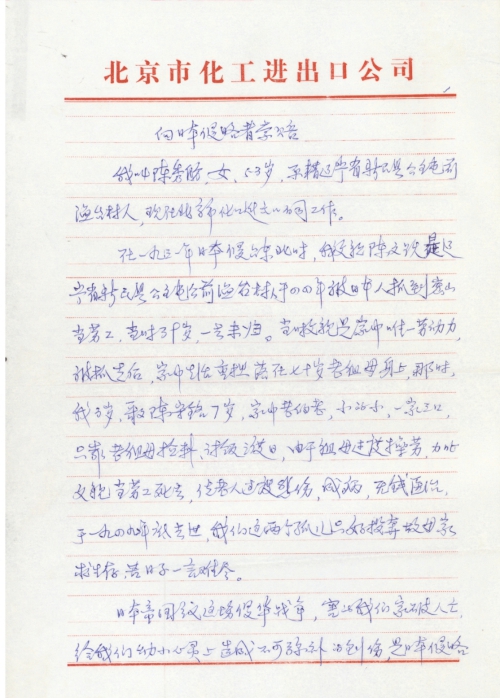 北京市化工进出口公司
1
向日本侵略者索赔
我叫陈秀 女、53岁，系辽宁省新民县公主屯前
渔台村人，现在北京市化工进出口公司工作。
在一九三一年日本侵占东北时，我父亲陈文 是辽
宁省新民县公主屯公社前渔台村人于四四年被日本人抓到 山
当劳工，当时39岁，一去未归。当时父亲是家中唯一劳动力，
被抓走后，家中生活重担落在七十岁老祖母身上，那时，
我3岁，哥哥陈 7岁，家中老的老，小的小，一家三口，
只靠老祖母捡 、讨饭渡日，由于祖母过度操劳，加之
父亲当劳工死去，使老人过度悲伤，成病，无钱医治，
于一九四九年 去世，我们这两个孤儿只好投奔 母家
求生存，苦日子一言难尽。
日本帝国主义这场侵华战争，害的我们家破人亡
给我们幼小心灵上造成不可弥补的创伤，是日本侵略